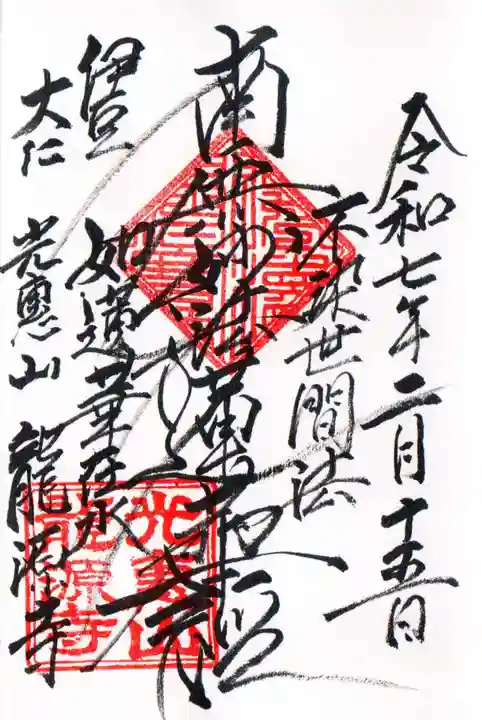 令和七年二月十五日
不染世間法
南無妙法蓮華経
如蓮華在水
伊豆
大仁
光恵山 龍源寺